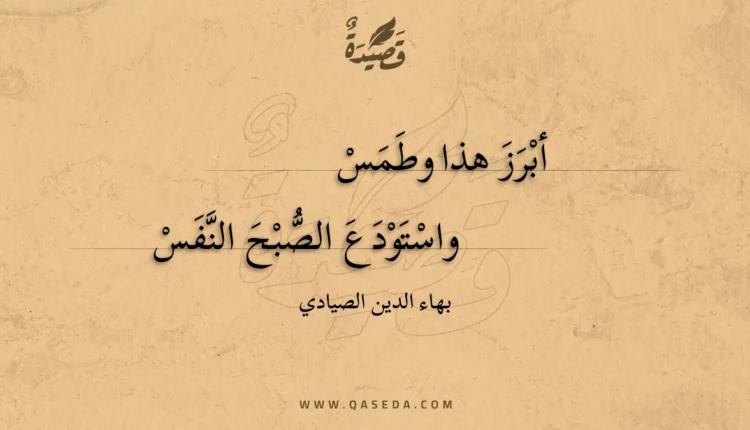 قَصِيْدَةٌ
أبْرَزَ هذا وطَمَسْ
واسْتَوْدَعَ الصُّبْحَ النَّفَسْ
بهاء الدين الصيادي
WWW.QASEDA.COM